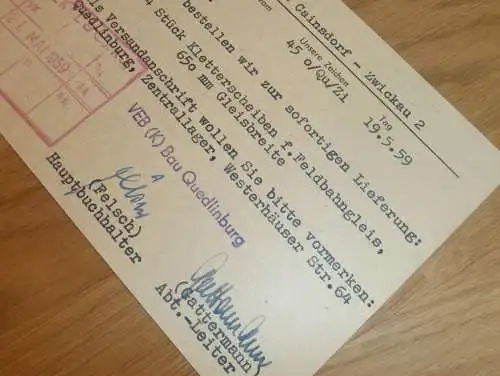 Cainsdorf - Zwickau 2
Unsere Zeichen
Tag
45 o/Qu/Zi
19.5.59
bestellen wir zur sofortigen Lieferung:
4 Stück Kletterscheiben f. Feldbahngleis,
650 mm Gleisbreite
ls Versandanschrift wollen Sie bitte vormerken:
Quedlinburg, Zentrallager, Westerhäuser Str. 64
21. MAI 1959
VEB (K) Bau Quedlinburg
(Felsch)
Hauptbuchhalter
(Gattermann)
Abt.-Leiter